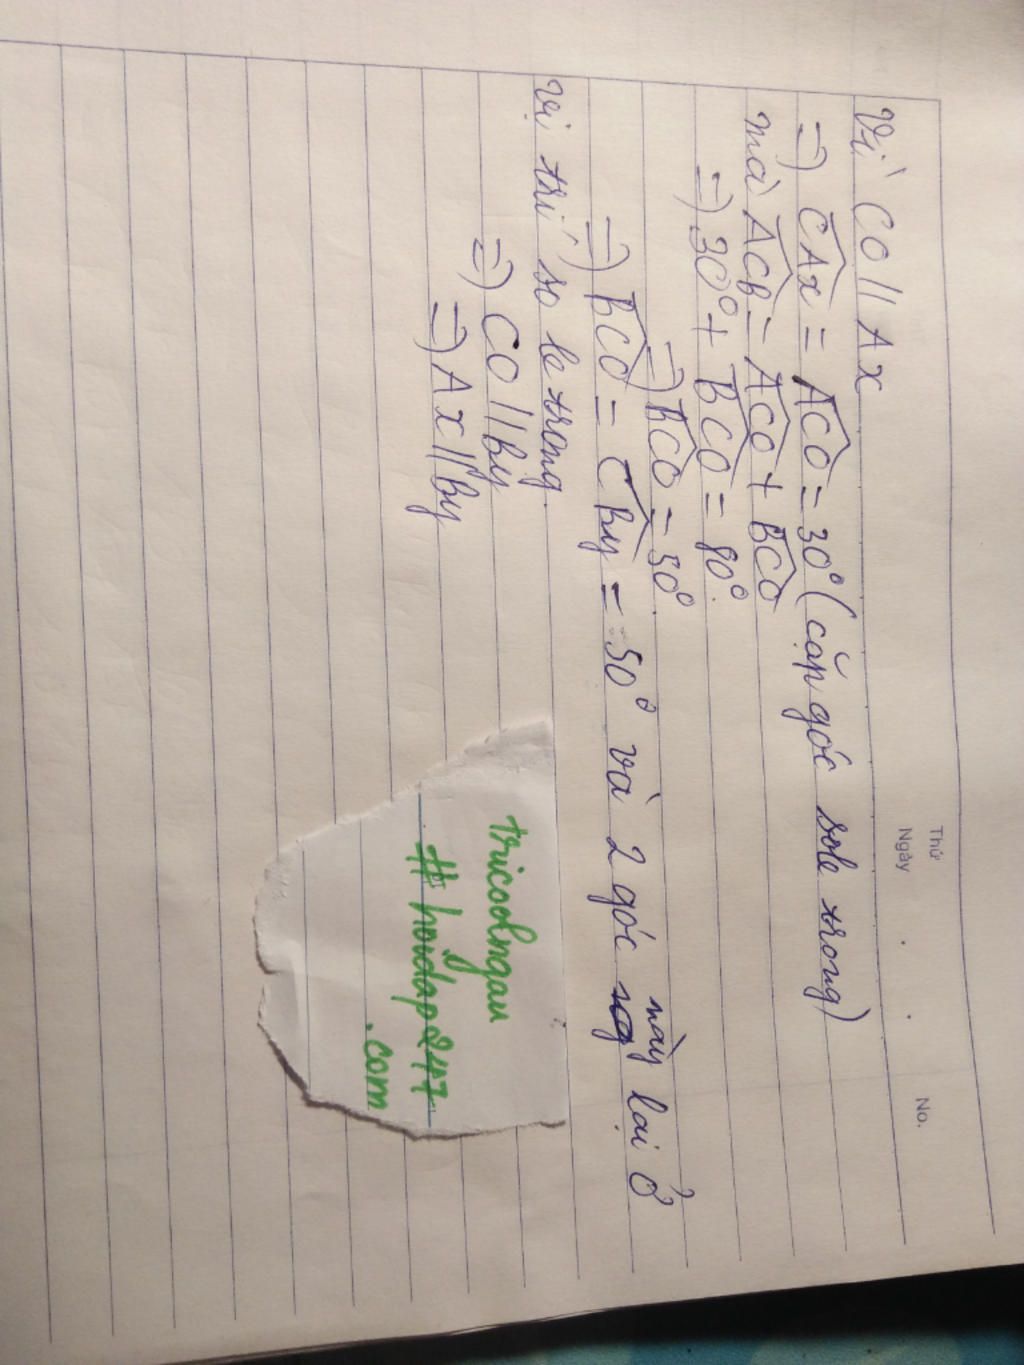 Thứ
Ngày . . No.
Vì CO // Ax
=) CAx = ACO = 30° (cặp góc so le trong)
mà ACB = ACO + BCO
=) 30° + BCO = 80°
=) BCO = 50°
=) BCO = CBy = 50° và 2 góc này lại ở
vị trí so le trong.
=) CO // By
=) Ax // By
tricoolngau
# hoidap247
.com